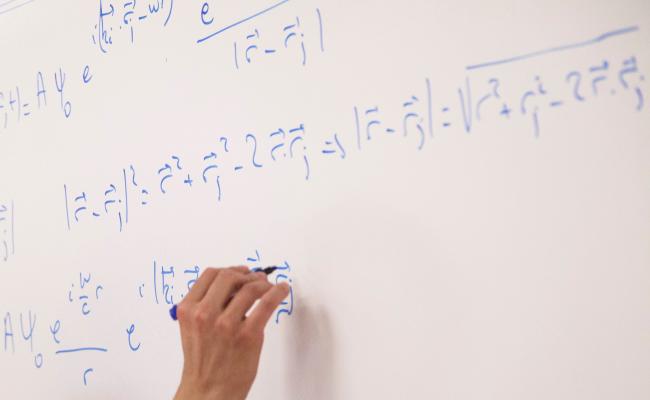 ,t) = A ψ₀ e^{i(k⃗ᵢ·r⃗ⱼ-wt)} e / |r⃗ - r⃗ⱼ|
|r⃗ - r⃗ⱼ|² = r⃗² + r⃗ⱼ² - 2 r⃗·r⃗ⱼ => |r⃗ - r⃗ⱼ| = √(r² + rⱼ² - 2 r⃗·r⃗ⱼ)
A ψ₀ e^{i w/c r} / r e^{i(k⃗ᵢ·r⃗